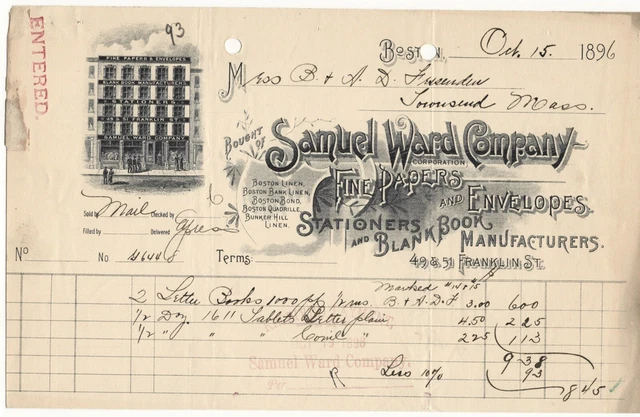 93
ENTERED.
BOSTON, Oct. 15. 1896
Mess B. & A. D. Fessenden
Townsend Mass.
FINE PAPERS & ENVELOPES
BLANK BOOK MANUFACTURERS
STATIONERS
49 & 51 FRANKLIN ST
SAMUEL WARD COMPANY
BOUGHT OF
SAMUEL WARD COMPANY
CORPORATION
FINE PAPERS AND ENVELOPES.
BOSTON LINEN,
BOSTON BANK LINEN,
BOSTON BOND,
BOSTON QUADRILLE
BUNKER HILL
LINEN.
STATIONERS AND BLANK BOOK MANUFACTURERS.
49 & 51 FRANKLIN ST.
Sold by Mail Checked by 6
Filled by Delivered
No No 46448 Terms:
Marked
2 Letter Books 1000 pp B. & A. D. F 3.00 600
1/2 Doz. 16 11 Tablets Letter plain 4.50 225
1/2 " " " " 225 113
938
Less 10% 93
845
Samuel Ward Company,
Per